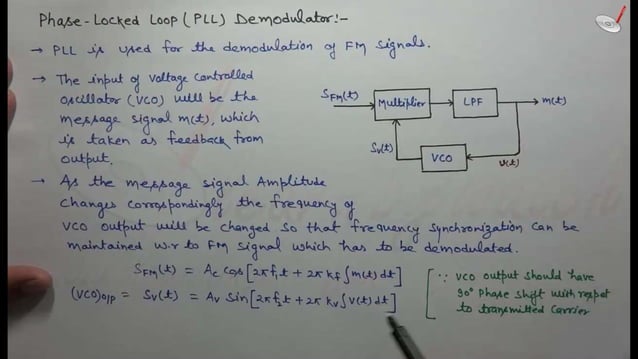 Phase-Locked Loop (PLL) Demodulator:-
→ PLL is used for the demodulation of FM signals.
→ The input of voltage controlled
oscillator (VCO) will be the
message signal m(t), which
is taken as feedback from
output.
S_FM(t) Multiplier LPF m(t)
S_v(t) VCO v(t)
→ As the message signal Amplitude
changes correspondingly the frequency of
VCO output will be changed so that frequency synchronization can be
maintained w.r to FM signal which has to be demodulated.
S_FM(t) = A_c cos[2πf₁t + 2π k_f ∫m(t) dt]
(VCO)o/p = S_v(t) = A_v sin[2πf₂t + 2π k_v ∫v(t) dt]
[∵ VCO output should have
90° phase shift with respet
to transmitted carrier